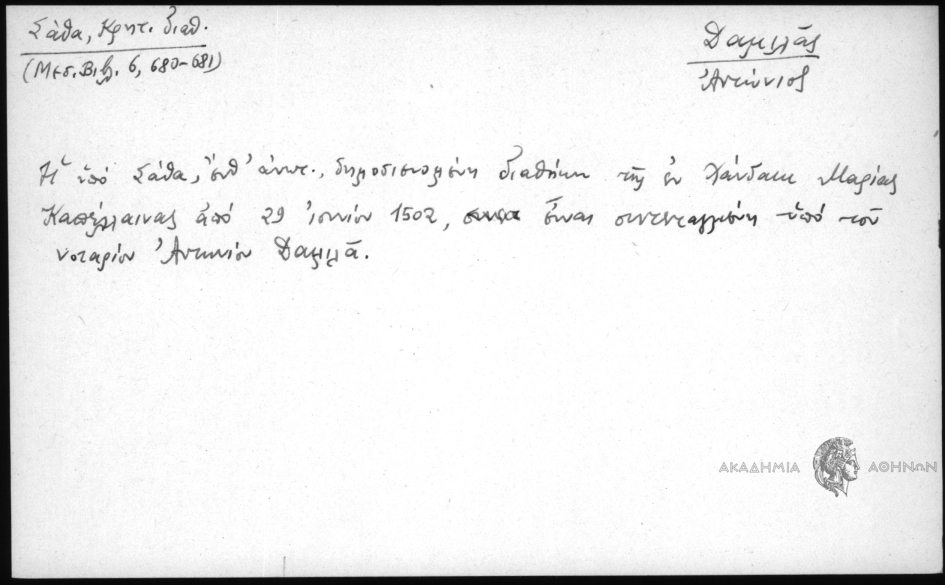 Σάθα, Κρητ. διαθ.
(Μεσ. Βιβλ. 6, 680-681)
Δαμιλᾶς
Ἀντώνιος
Ἡ ὑπό Σάθα, ἔνθ' ἀνωτ., δημοσιευομένη διαθήκη τῆς ἐν Χάνδακι Μαρίας
Καπελλαινας ἀπό 29 ἰουνίου 1502, εἶναι συντεταγμένη ὑπό τοῦ
νοταρίου Ἀντωνίου Δαμιλᾶ.
ΑΚΑΔΗΜΙΑ ΑΘΗΝΩΝ